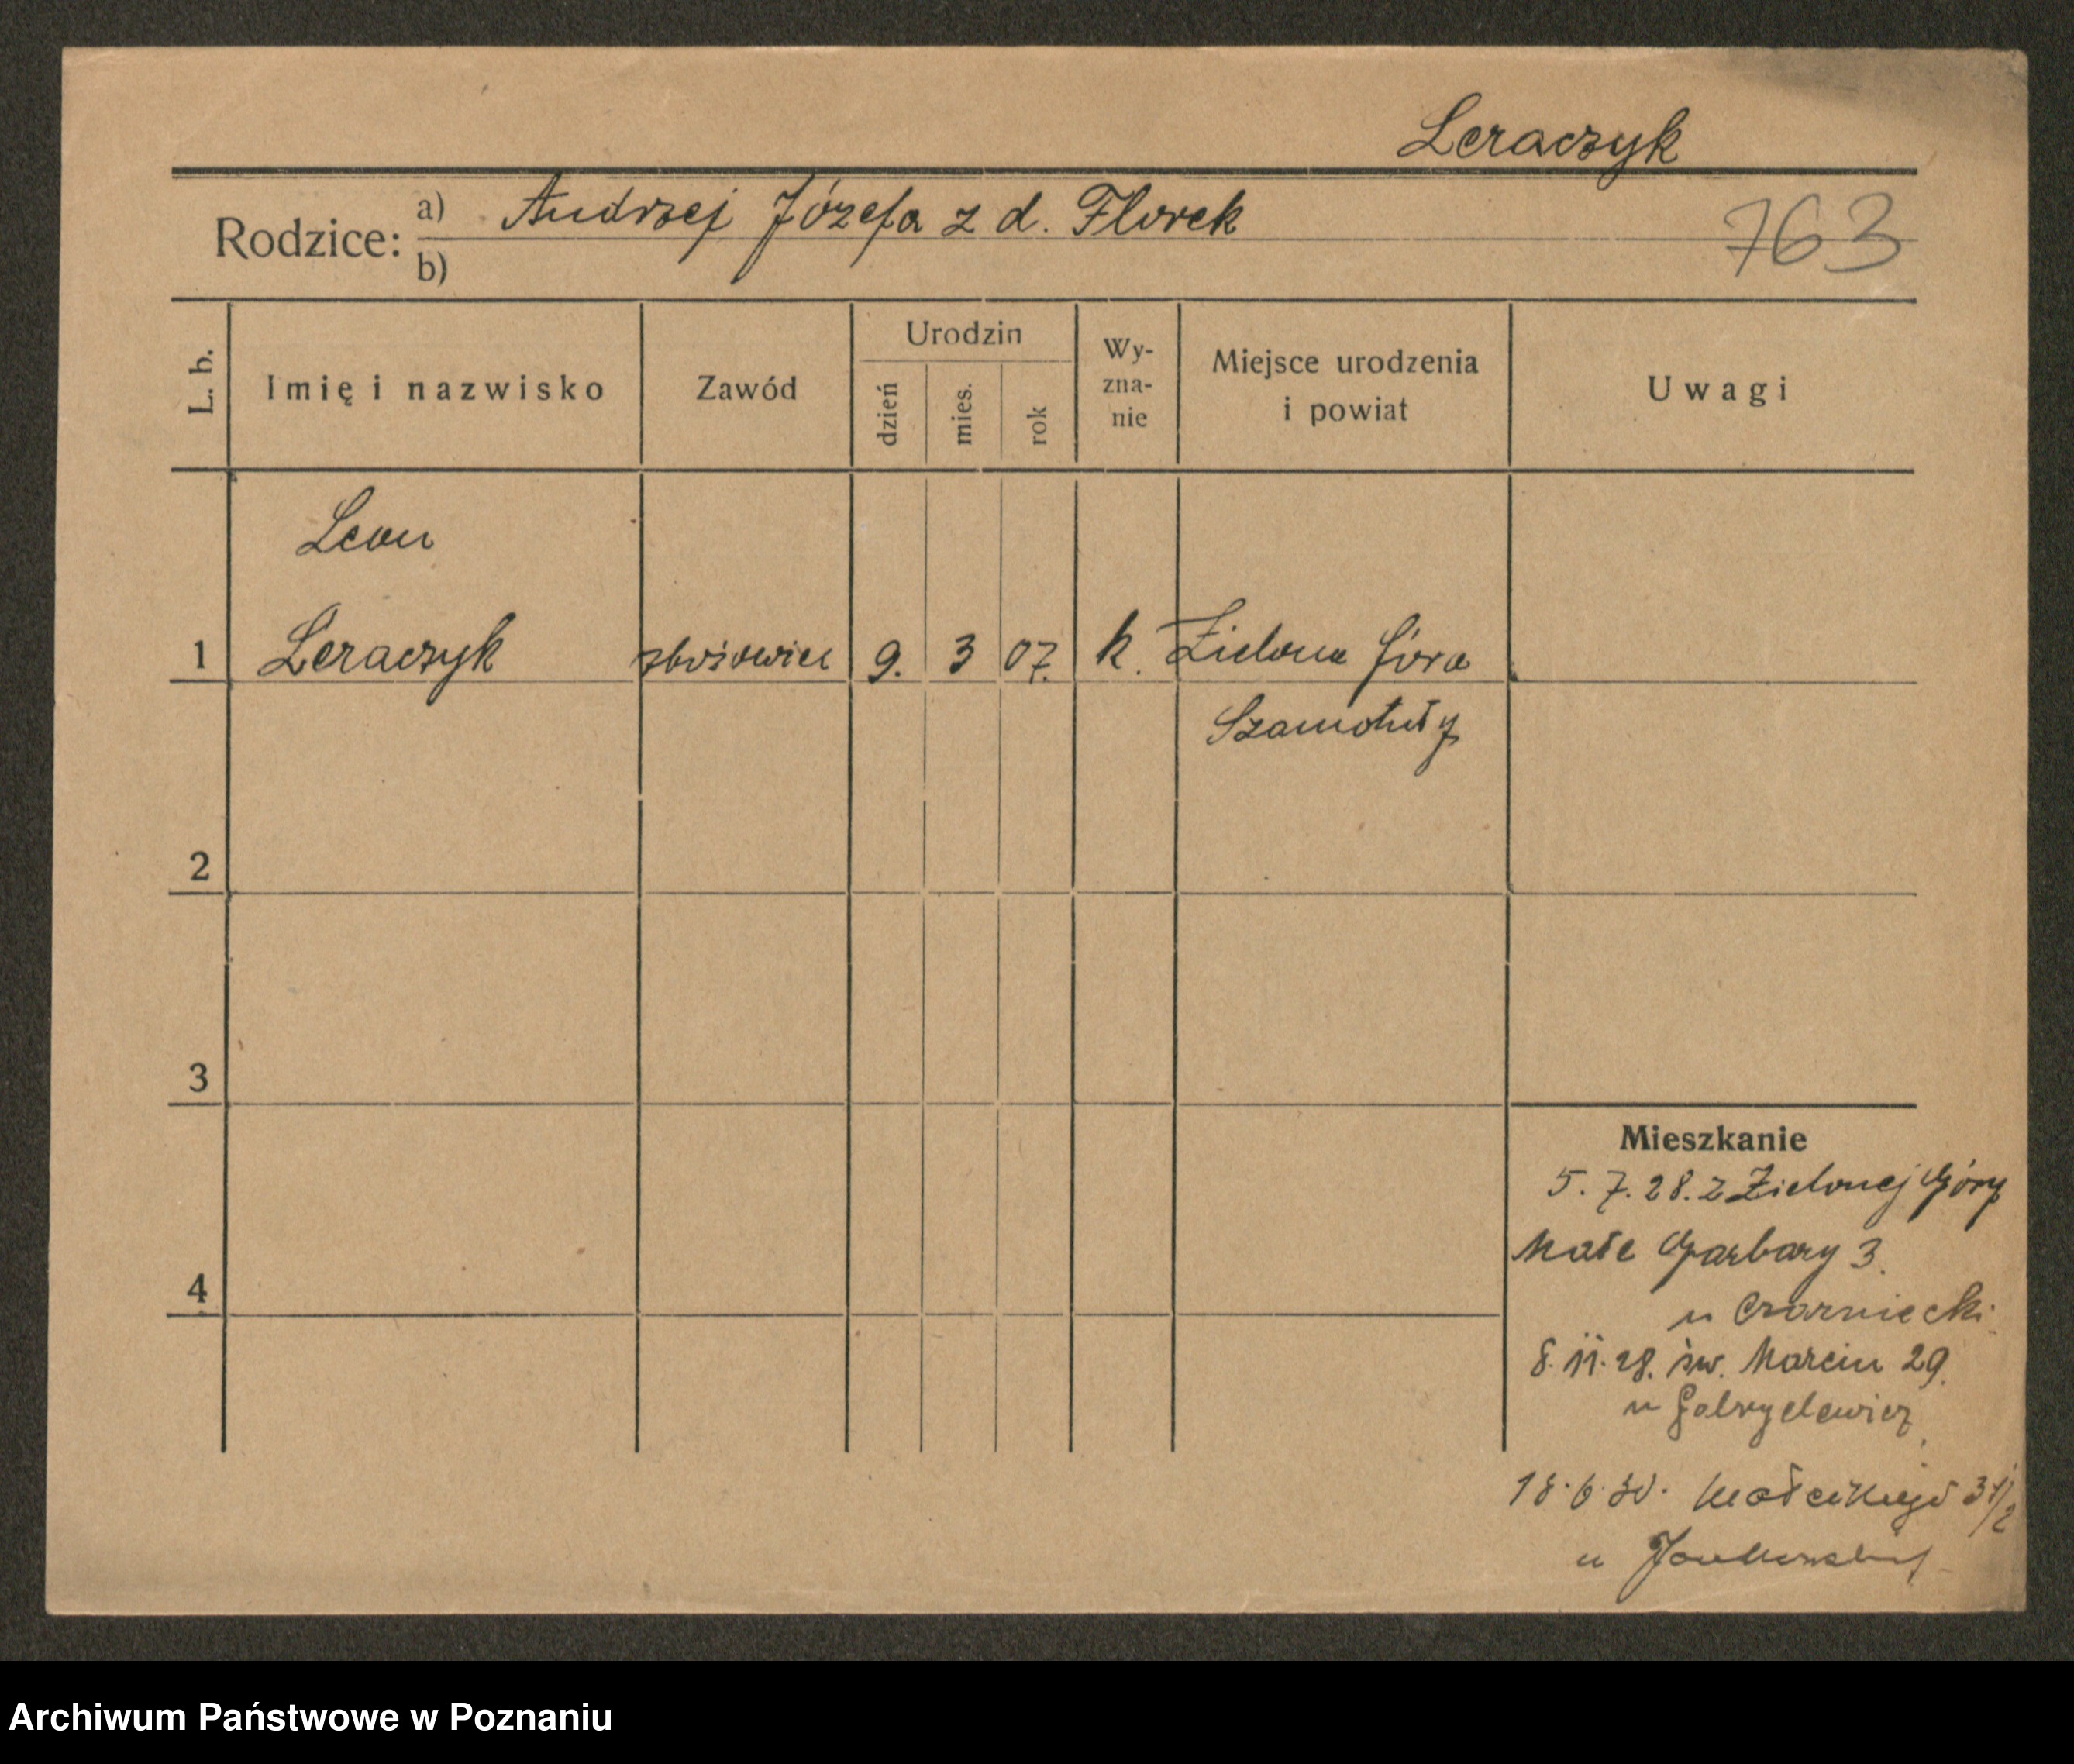 Leraczyk
Rodzice: a) Andrzej Józefa z d. Florek
763
b)
L. b.
Imię i nazwisko
Zawód
Urodzin
dzień
mies.
rok
Wy-
zna-
nie
Miejsce urodzenia
i powiat
Uwagi
Leon
1 Leraczyk zbożowiec 9. 3 07. k. Zielona Góra
Szamotuły
2
3
4
Mieszkanie
5. 7. 28. z Zielonej Góry
Małe Garbary 3.
u Czarniecki
8. 11. 28. św. Marcin 29.
u Gabryelewicz
18. 6. 30. Małeckiego 31/2
u
Archiwum Państwowe w Poznaniu